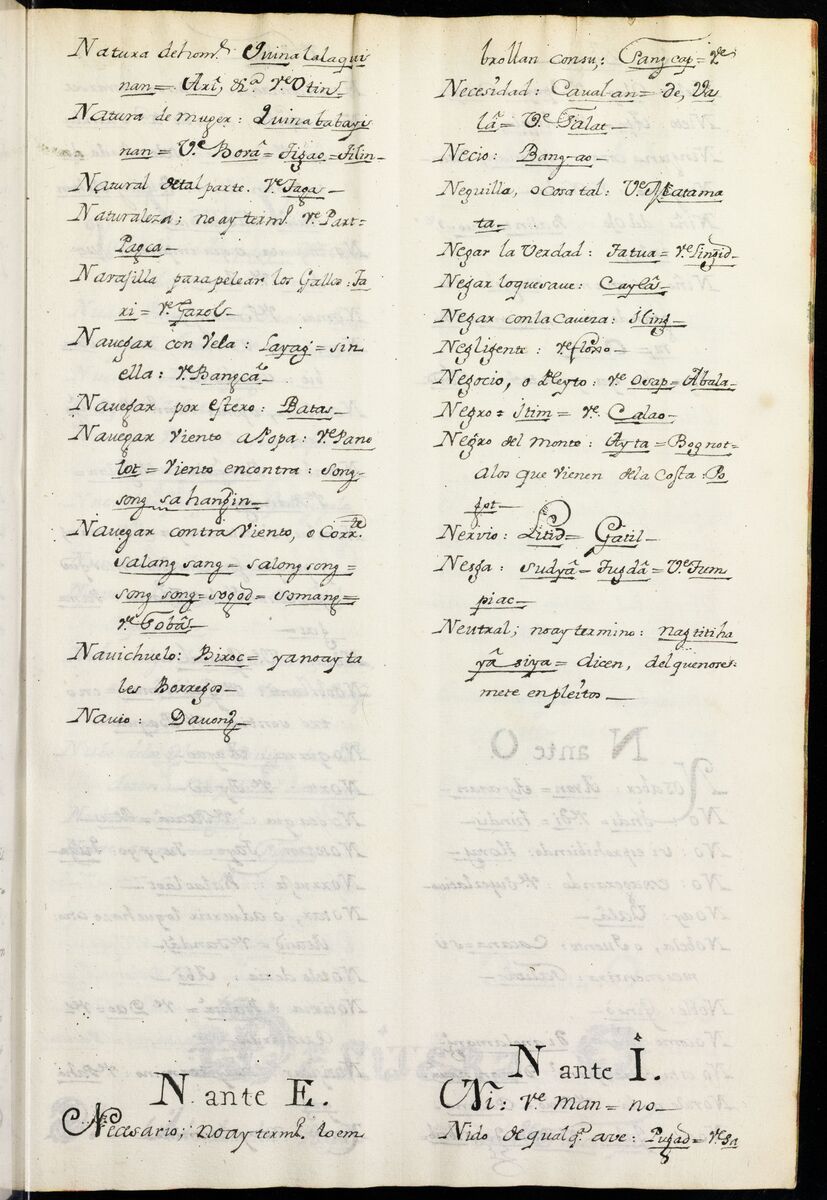 Natura dehomᵉ. Quinalalaqui
nan= Arî, &ª. Vᵉ Otin–
Natura de muger: Quinababayi
nan= Vᵉ Borâ= Tigao= Tilin–
Natural detal parte. Vᵉ Taga–
Naturaleza; no ay termᵒ. Vᵉ Part=
Pagca–
Navajilla para pelear los Gallos: Ta
ri= Vᵉ Garol–
Nauegar con Vela: Layag= sin
ella: Vᵉ Bangcâ–
Nauegar por estero: Batas–
Nauegar Viento a Popa: Vᵉ Pano
lot= Viento encontra: song-
song sa hangin–
Nauegar contra Viento, o Corrᵗᵉ.
salang sang= salong song=
song song= sogod= somang=
Vᵉ Tobâs–
Nauichuelo: Biroc= ya no ay ta
les Borregos–
Nauio: Dauong–
N. ante E.
Necesario; no ay termᵒ. lo em
brollan con su,: Pang cap= Vᵉ
Necesidad: Caualan= de, Va
lâ= Vᵉ Salat–
Necio: Bang-ao–
Neguilla, o cosa tal: Vᵉ Matama
ta–
Negar la Verdad: Tatua= Vᵉ Singid–
Negar loquesaue: Caylâ–
Negar con la Caueza: Iling–
Negligente: Vᵉ floxo–
Negocio, o Pleyto: Vᵉ Osap= Abala–
Negro: Itim= Vᵉ Calao–
Negro del monte: Ayta= Bognot=
a los que vienen dela Costa: Po
pot–
Nervio: Litid= Gatil–
Nesga: sudyâ= Tugdâ= Vᵉ Tum
piac–
Neutral; no ay termino: nagtitiha
yâ siya= dicen, del que no se=
mete en pleitos–
N ante I.
Ni: Vᵉ man= no–
Nido de qualqᵃ. ave: Pugad= Vᵉ sa